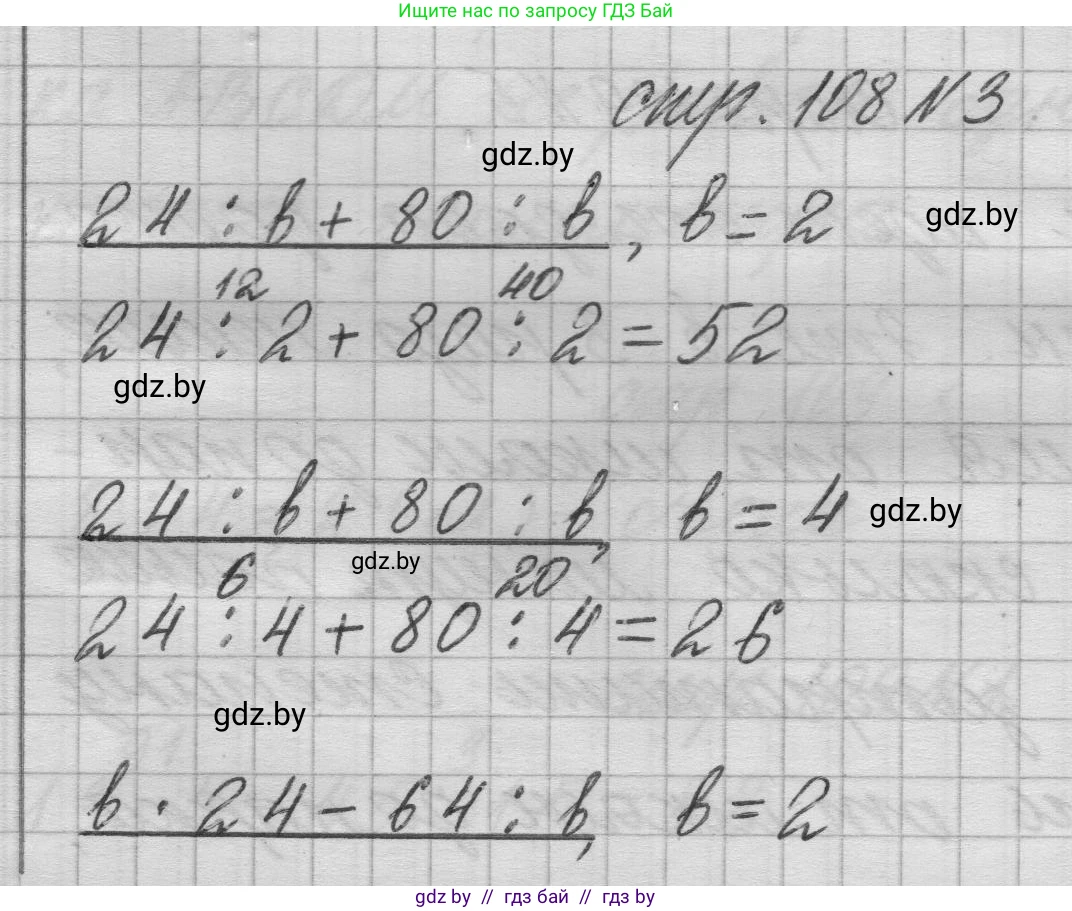 Ищите нас по запросу ГДЗ Бай
стр. 108 №3
gdz.by
24 : в + 80 : в, в = 2
gdz.by
12 40
24 : 2 + 80 : 2 = 52
gdz.by
24 : в + 80 : в, в = 4
gdz.by
gdz.by
6 20
24 : 4 + 80 : 4 = 26
gdz.by
в · 24 - 64 : в, в = 2
gdz by // гдз бай // гдз by